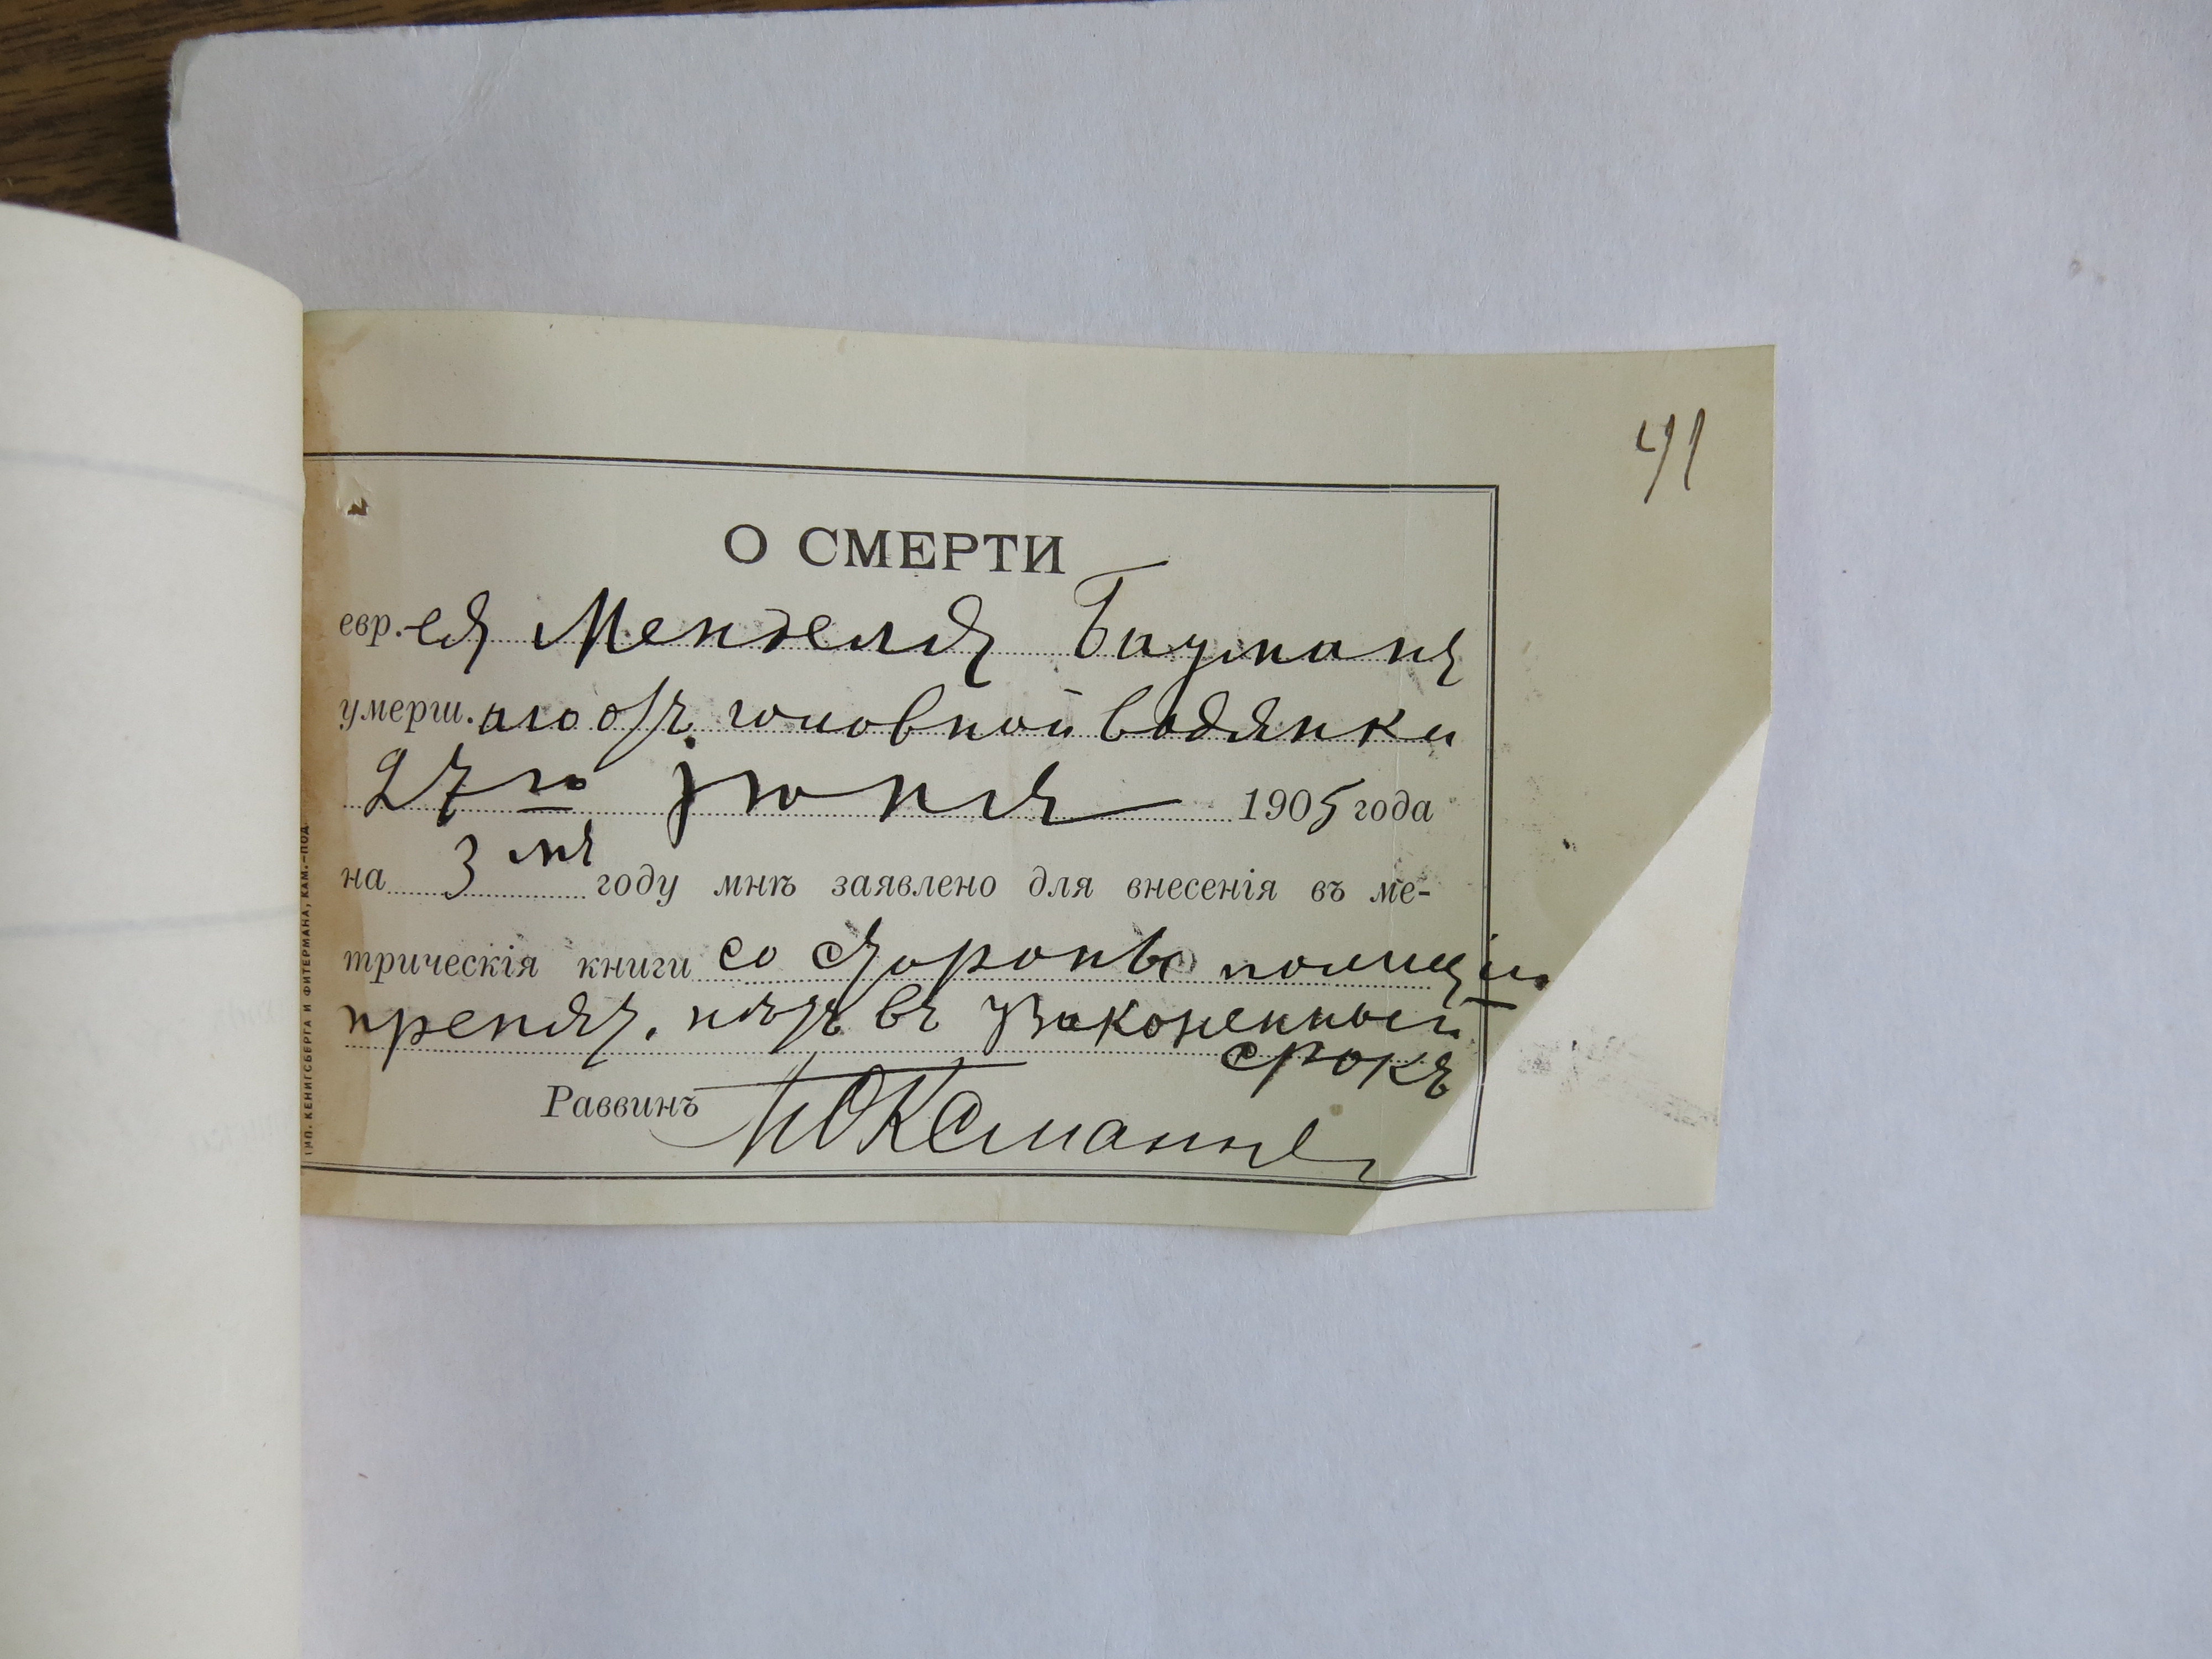 41
О СМЕРТИ
евр.ея Менделя Баумана
умерш.аго отъ головной водянки
27го Іюня 1905 года
на 3 мъ году мнѣ заявлено для внесенія въ ме-
трическія книги со стороны полиціи
препят. нѣтъ въ узаконенный
срокъ
Раввинъ
ТИП. КЕНИГСБЕРГА И ФИТЕРМАНА, КАМ.-ПОД.